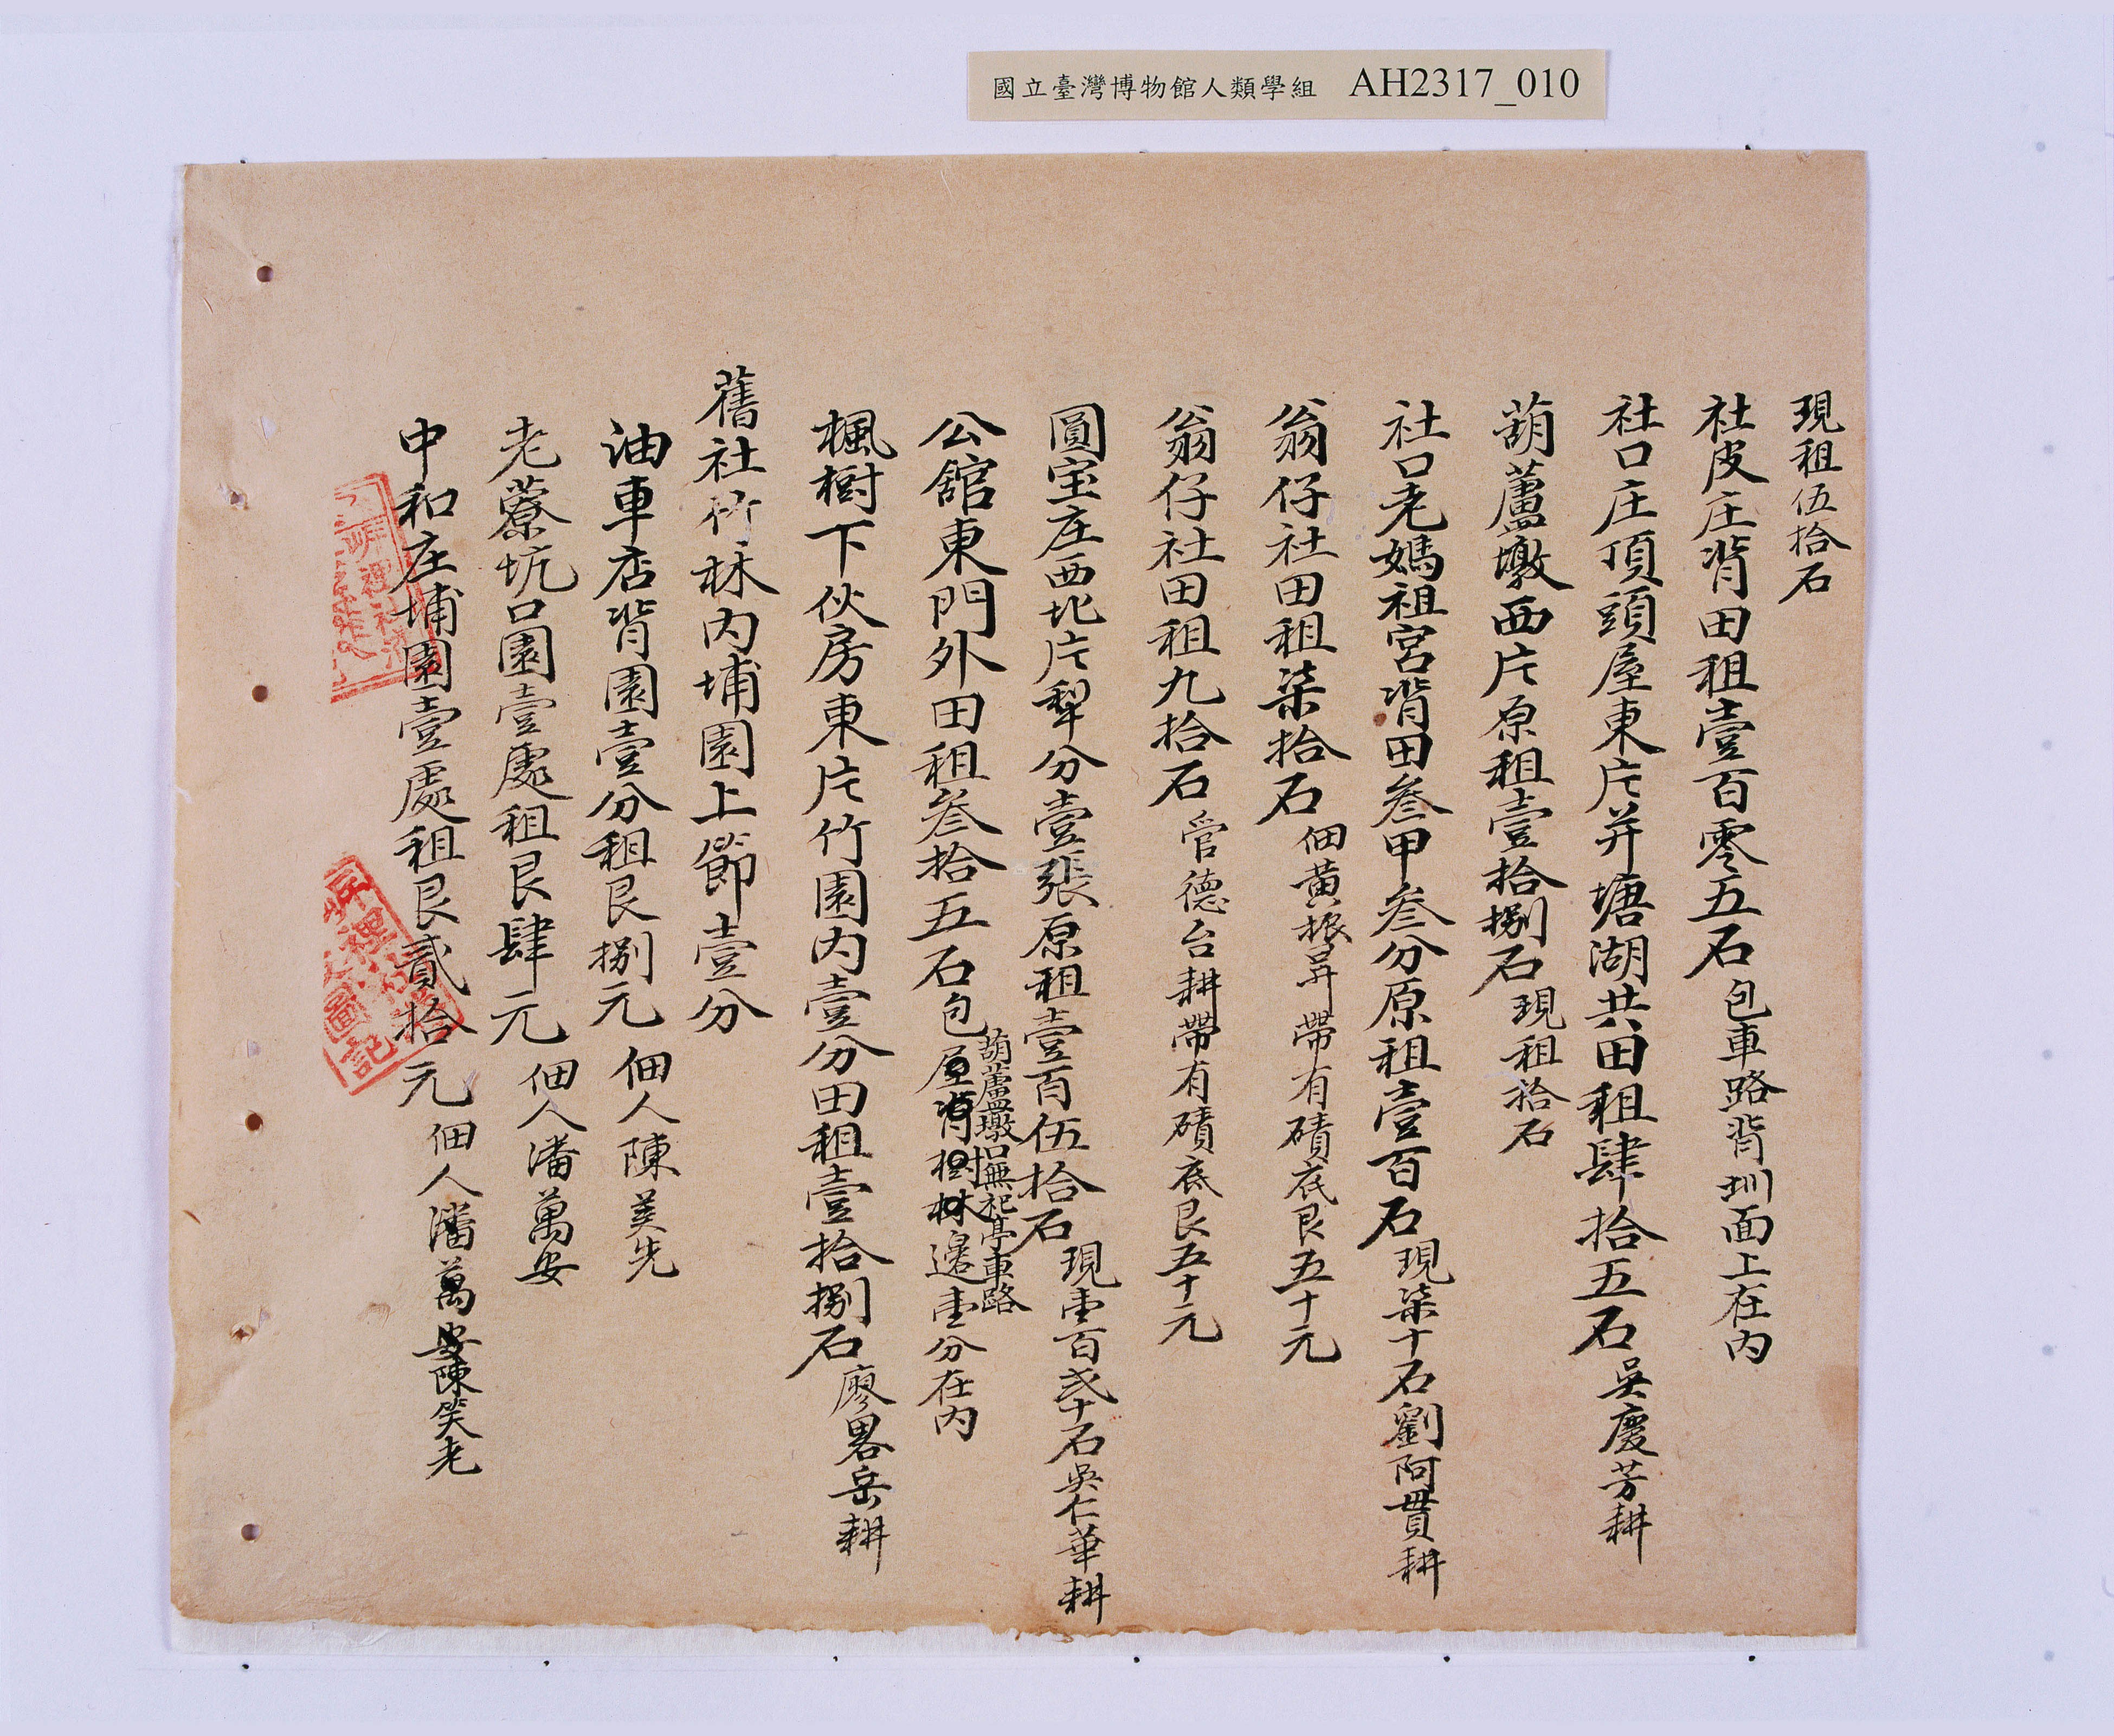 國立臺灣博物館人類學組 AH2317_010
現租伍拾石
社皮庄背田租壹百零五石包車路背圳面上在內
社口庄頂頭屋東片并塘湖共田租肆拾五石吳慶芳耕
葫蘆墩西片原租壹拾捌石現租拾石
社口老媽祖宮背田叁甲叁分原租壹百石現柒十石劉阿貫耕
翁仔社田租柒拾石佃黃振昇帶有磧底艮五十元
翁仔社田租九拾石管德台耕帶有磧底艮五十元
圓宝庄西北片犁分壹張原租壹百伍拾石現壹百弍十石吳仁華耕
葫蘆墩口無祀亭車路
公舘東門外田租叁拾五石包屋背樹林邊壹分在內
楓樹下伙房東片竹園內壹分田租壹拾捌石廖畧岳耕
舊社竹林內埔園上節壹分
油車店背園壹分租艮捌元佃人陳美先
老藔坑口園壹處租艮肆元佃人潘萬安
中和庄埔園壹處租艮貳拾元佃人潘萬安陳笑老